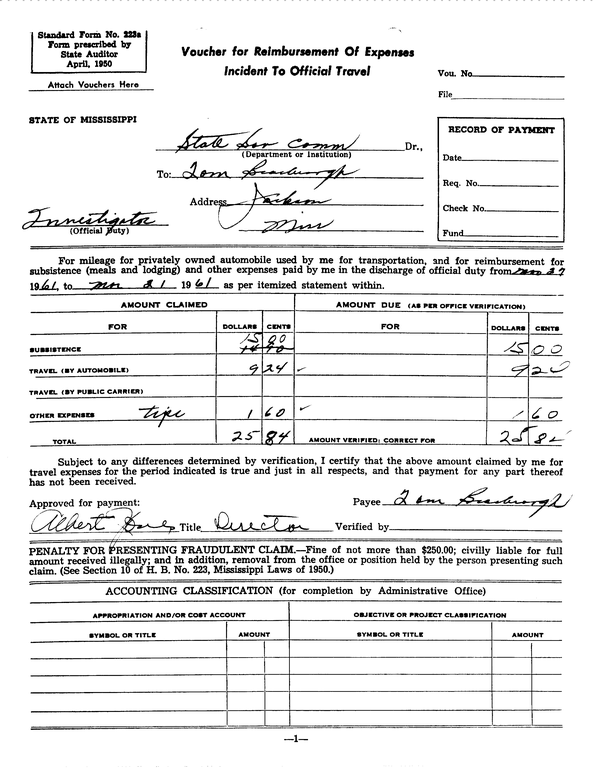 Standard Form No. 223a
Form prescribed by
State Auditor
April, 1950
Attach Vouchers Here
Voucher for Reimbursement Of Expenses
Incident To Official Travel
Vou. No.
File
STATE OF MISSISSIPPI
State Sov Comm Dr.,
(Department or Institution)
To: Tom Scarbrough
Address Jackson
Miss
Investigator
(Official Duty)
RECORD OF PAYMENT
Date
Req. No.
Check No.
Fund
For mileage for privately owned automobile used by me for transportation, and for reimbursement for
subsistence (meals and lodging) and other expenses paid by me in the discharge of official duty from 27
1961, to 31 1961 as per itemized statement within.
AMOUNT CLAIMED AMOUNT DUE (AS PER OFFICE VERIFICATION)
FOR DOLLARS CENTS FOR DOLLARS CENTS
15 00
SUBSISTENCE 15 00
TRAVEL (BY AUTOMOBILE) 9 24 ✓ 9 24
TRAVEL (BY PUBLIC CARRIER)
OTHER EXPENSES tips 1 60 ✓ 1 60
TOTAL 25 84 AMOUNT VERIFIED: CORRECT FOR 25 84
Subject to any differences determined by verification, I certify that the above amount claimed by me for
travel expenses for the period indicated is true and just in all respects, and that payment for any part thereof
has not been received.
Approved for payment: Payee Tom Scarbrough
Albert Jones Title Director Verified by
PENALTY FOR PRESENTING FRAUDULENT CLAIM.—Fine of not more than $250.00; civilly liable for full
amount received illegally; and in addition, removal from the office or position held by the person presenting such
claim. (See Section 10 of H. B. No. 223, Mississippi Laws of 1950.)
ACCOUNTING CLASSIFICATION (for completion by Administrative Office)
APPROPRIATION AND/OR COST ACCOUNT OBJECTIVE OR PROJECT CLASSIFICATION
SYMBOL OR TITLE AMOUNT SYMBOL OR TITLE AMOUNT
—1—